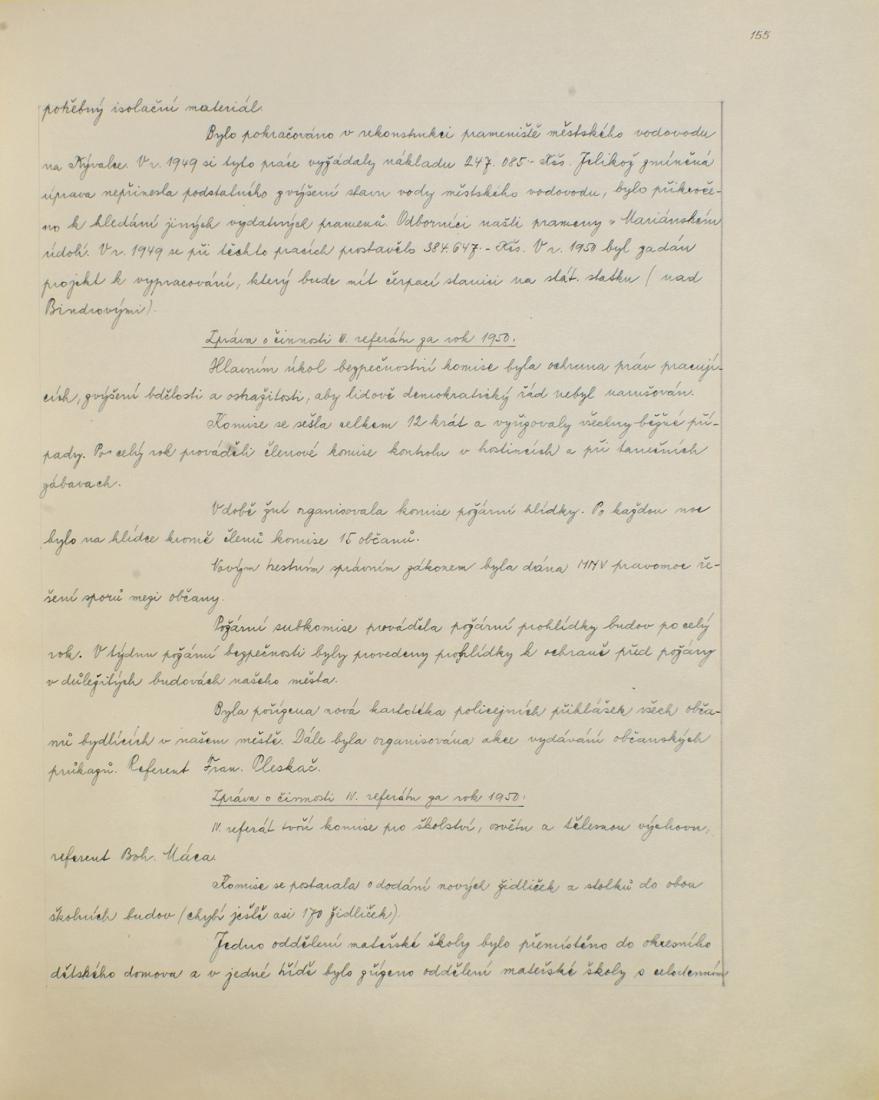 155
potřebný isolační materiál.
Bylo pokračováno v rekonstrukci prameniště městského vodovodu
na Kývalce. V r. 1949 si tyto práce vyžádaly nákladu 247.085.- Kčs. Jelikož zmíněná
úprava nepřinesla podstatného zvýšení stavu vody městského vodovodu, bylo přikroče-
no k hledání jiných vydatných pramenů. Odborníci našli prameny v Mariánském
údolí. V r. 1949 se při těchto pracích prostavělo 384.647.- Kčs. V r. 1950 byl zadán
projekt k vypracování, který bude mít čerpací stanici na stát. statku (nad
Bindrovými).
Zpráva o činnosti III. referátu za rok 1950.
Hlavním úkol bezpečnostní komise byla ochrana práv pracují-
cích, zvýšení bdělosti a ostražitosti, aby lidově demokratický řád nebyl narušován.
Komise se sešla celkem 12 krát a vyřizovaly všechny běžné pří-
pady. Po celý rok prováděli členové komise kontrolu v hostincích a při tanečních
zábavách.
V době žní organisovala komise požární hlídky. Po každou noc
bylo na hlídce kromě členů komise 15 občanů.
Novým trestním správním zákonem byla dána MNV pravomoc ře-
šení sporů mezi občany.
Požární subkomise prováděla požární prohlídky budov po celý
rok. V týdnu požární bezpečnosti byly provedeny prohlídky k ochraně před požáry
v důležitých budovách našeho města.
Byla pořízena nová kartotéka policejních přihlášek všech obča-
nů bydlících v našem městě. Dále byla organisována akce vydávání občanských
průkazů. Referent Fran. Pleskač.
Zpráva o činnosti IV. referátu za rok 1950.
IV. referát tvoří komise pro školství, osvětu a tělesnou výchovu,
referent Boh. Máca.
Komise se postarala o dodání nových židliček a stolků do obou
školních budov (chybí ještě asi 170 židliček).
Jedno oddělení mateřské školy bylo přemístěno do okresního
dětského domova a v jedné třídě bylo zřízeno oddělení mateřské školy s celodenním